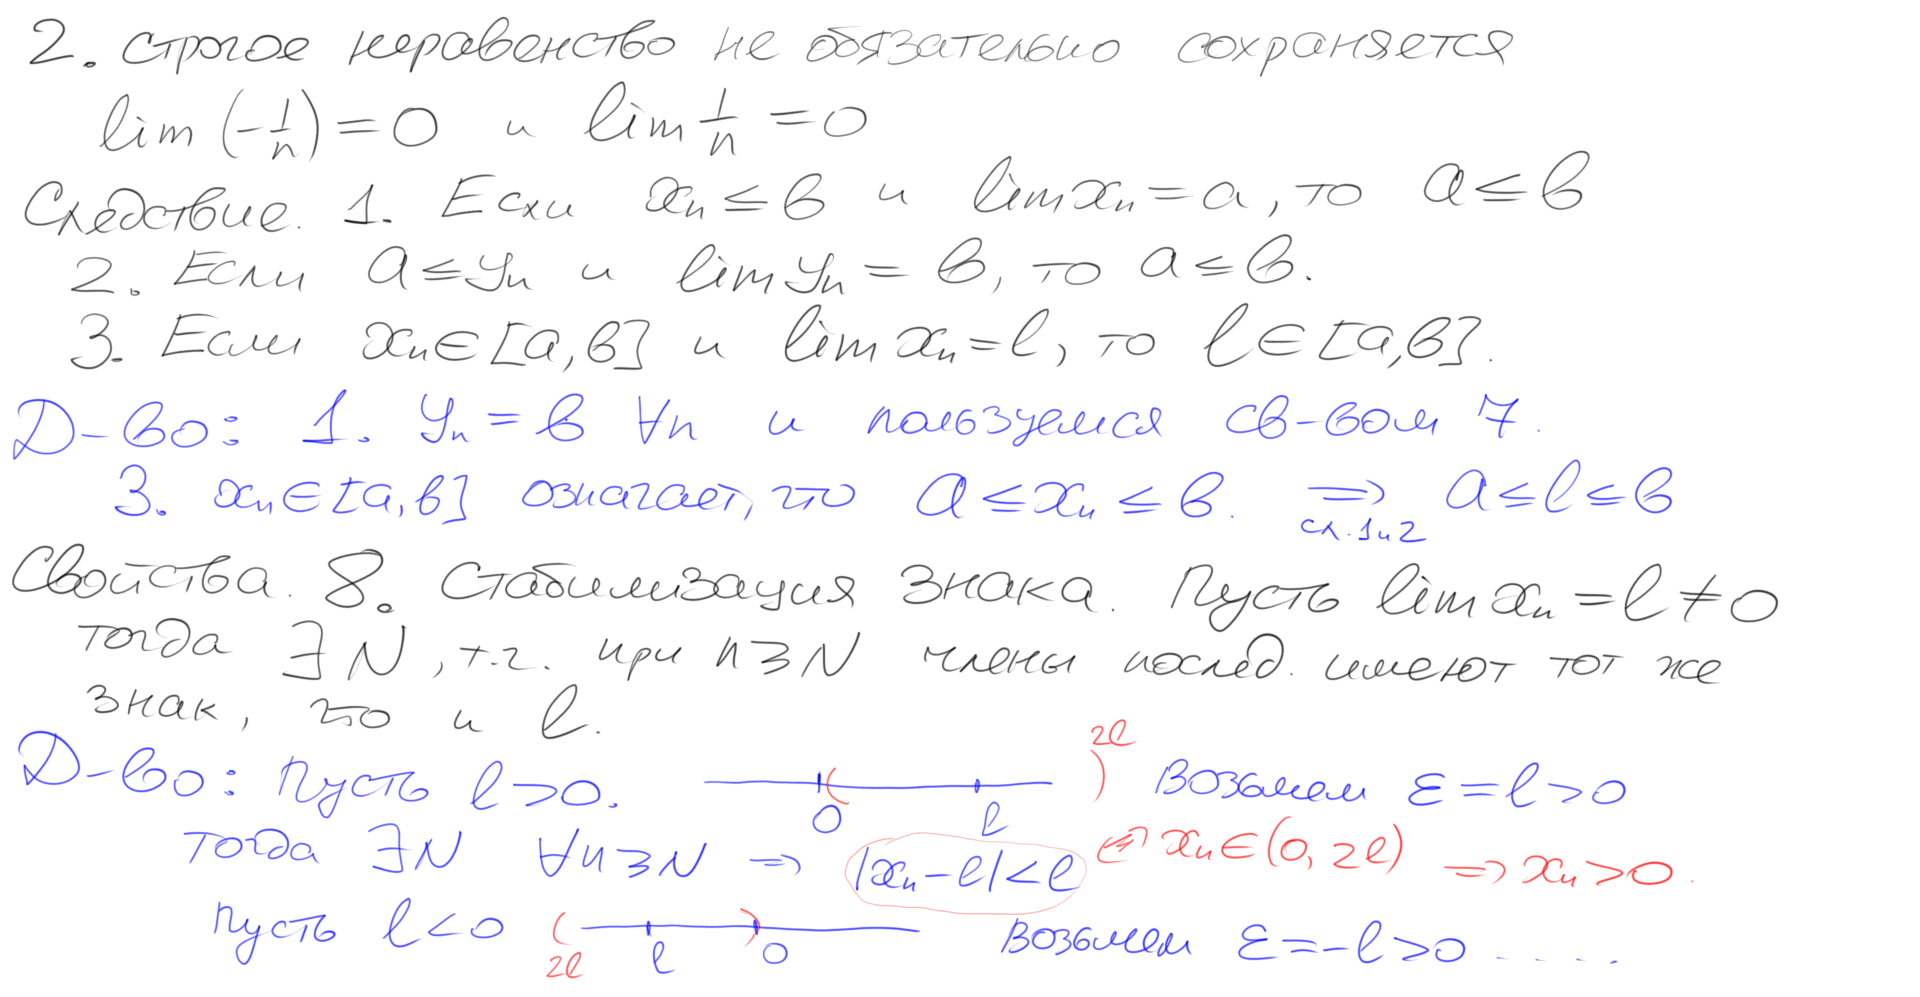 2. строгое неравенство не обязательно сохраняется
lim (-1/n) = 0 и lim 1/n = 0
Следствие. 1. Если xₙ ≤ b и lim xₙ = a, то a ≤ b
2. Если a ≤ yₙ и lim yₙ = b, то a ≤ b.
3. Если xₙ ∈ [a, b] и lim xₙ = l, то l ∈ [a, b].
Д-во: 1. yₙ = b ∀n и пользуемся св-вом 7.
3. xₙ ∈ [a, b] означает, что a ≤ xₙ ≤ b. ⟹ a ≤ l ≤ b
сл. 1 и 2
Свойства. 8. Стабилизация знака. Пусть lim xₙ = l ≠ 0
тогда ∃ N, т.ч. при n ≥ N члены послед. имеют тот же
знак, что и l.
Д-во: Пусть l > 0. 0 l 2l Возьмем ε = l > 0
тогда ∃N ∀n ≥ N ⇒ |xₙ - l| < l ⇔ xₙ ∈ (0, 2l) ⇒ xₙ > 0.
Пусть l < 0 2l l 0 Возьмем ε = -l > 0 .....